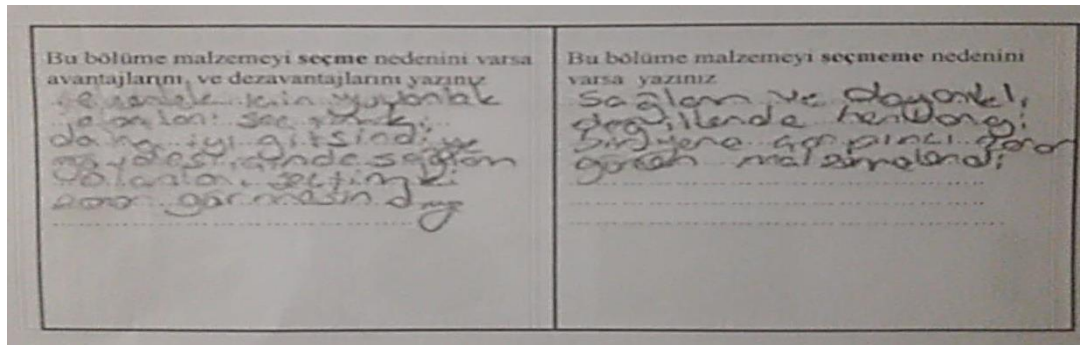 Bu bölüme malzemeyi seçme nedenini varsa
avantajlarını, ve dezavantajlarını yazınız
için yuvarlak
olanları seçtimki
daha iyi gitsindiye
gövdesi içinde sağlam
olanları seçtimki
zarar görmesin diye
Bu bölüme malzemeyi seçmeme nedenini
varsa yazınız
Sağlam ve dayanıklı
değillerde herhangi
bir yere çarpınca zarar
görcek malzemelerdi